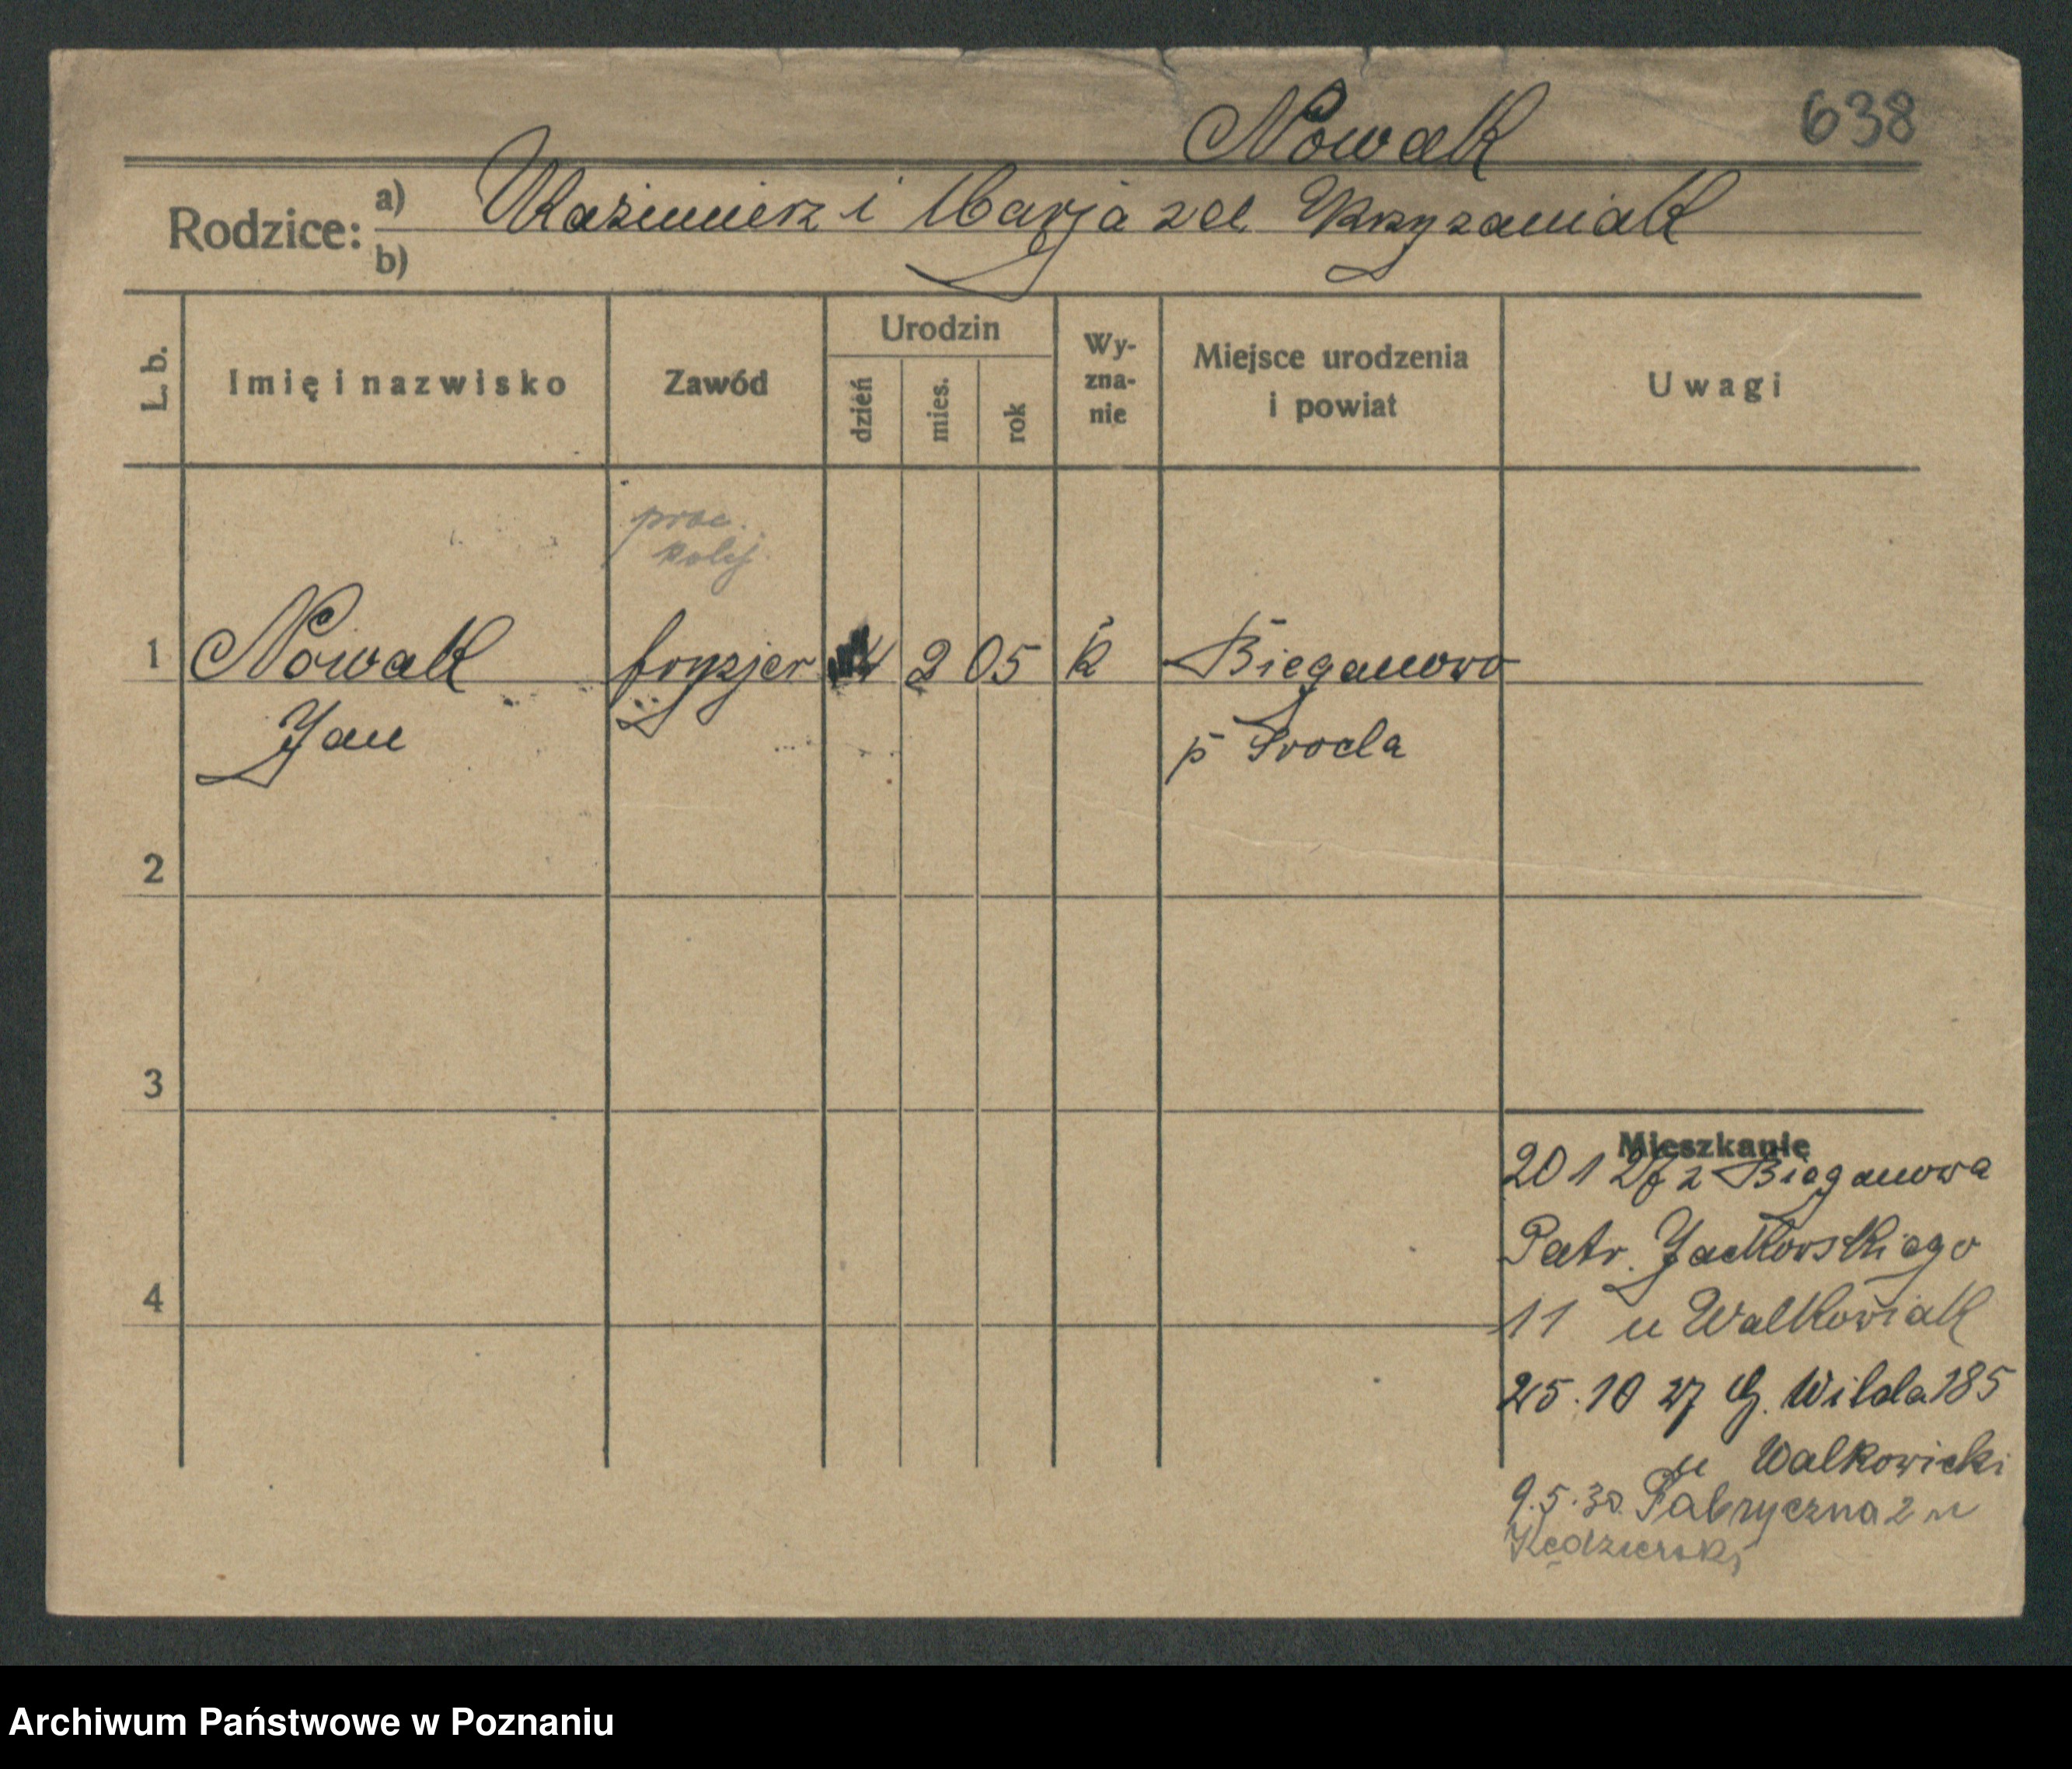 Nowak 638
Rodzice: a) Kazimierz i Marja zd. Krzyzaniak
b)
L. b. Imię i nazwisko Zawód Urodzin dzień mies. rok Wy-zna-nie Miejsce urodzenia i powiat Uwagi
prac.
kolej
1 Nowak fryzjer 2 05 k Bieganowo
Jan p Sroda
2
3
Mieszkanie
20 1 z Bieganowa
Patr. Jackowskiego
4
11 u Walkowiak
25.10 27 G. Wilda 185
u Walkowicki
9.5.30. Fabryczna 2 u
Kędzierski
Archiwum Państwowe w Poznaniu